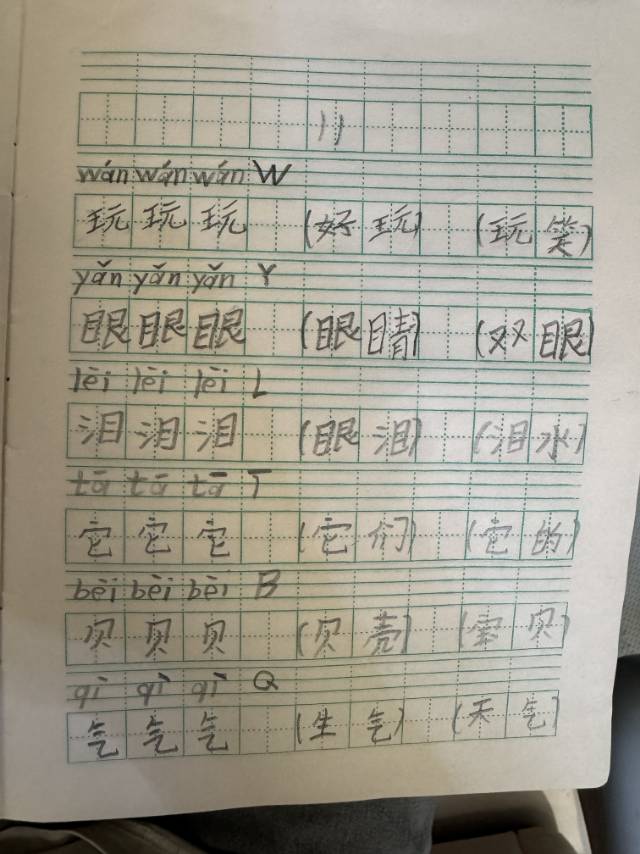 11
wán wán wán W
玩 玩 玩 (好 玩) (玩 笑)
yǎn yǎn yǎn Y
眼 眼 眼 (眼 睛) (双 眼)
lèi lèi lèi L
泪 泪 泪 (眼 泪) (泪 水)
tā tā tā T
它 它 它 (它 们) (它 的)
bèi bèi bèi B
贝 贝 贝 (贝 壳) (宝 贝)
qì qì qì Q
气 气 气 (生 气) (天 气)